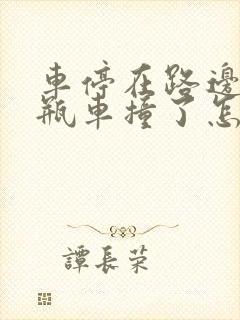 車停在路邊
瓶車撞了怎
譚長荣